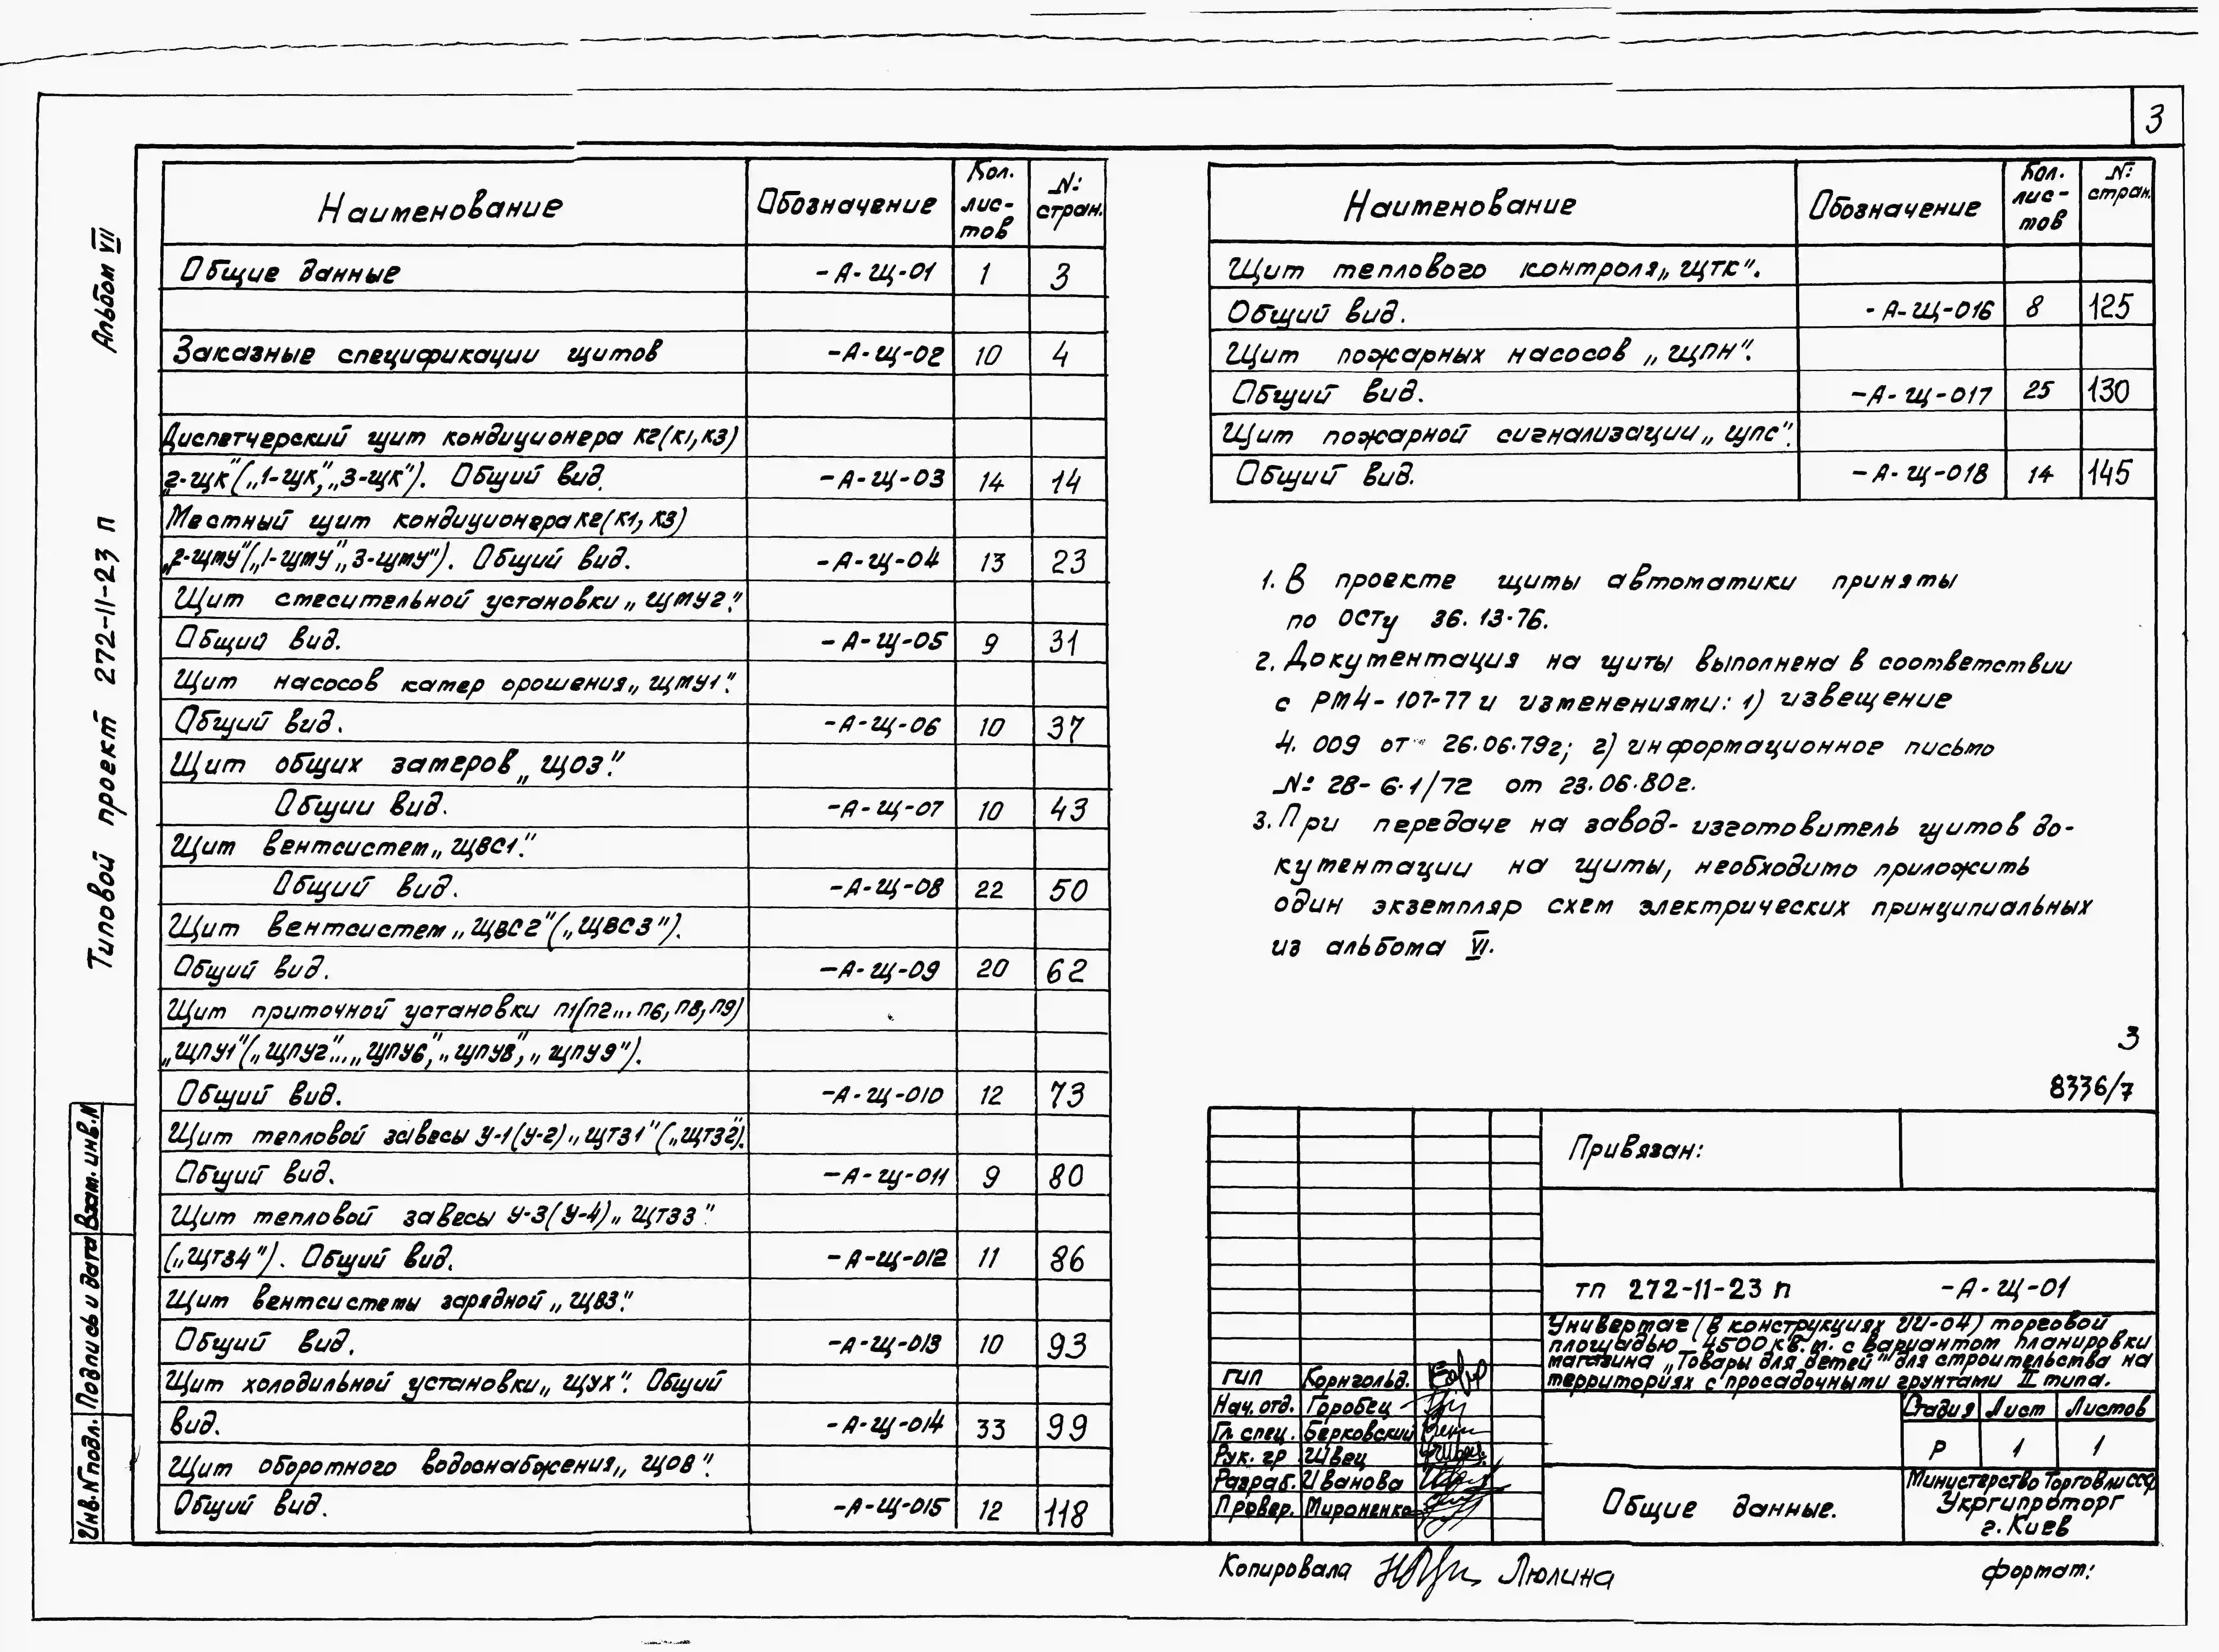 3
Альбом VII
Типовой проект 272-11-23 п
Инв.№ подл. Подпись и дата Взам. инв.№
Наименование Обозначение Кол. лис-тов №: стран.
Общие данные -А-Щ-01 1 3
Заказные спецификации щитов -А-Щ-02 10 4
Диспетчерский щит кондиционера К2(К1,К3)
„2-ЩК"(„1-ЩК",„3-ЩК"). Общий вид. -А-Щ-03 14 14
Местный щит кондиционера К2(К1, К3)
„2-ЩМУ"(„1-ЩМУ"„3-ЩМУ"). Общий вид. -А-Щ-04 13 23
Щит смесительной установки „ЩМУ2."
Общий вид. -А-Щ-05 9 31
Щит насосов камер орошения „ЩМУ1".
Общий вид. -А-Щ-06 10 37
Щит общих замеров „ЩОЗ."
Общий вид. -А-Щ-07 10 43
Щит вентсистем „ЩВС1."
Общий вид. -А-Щ-08 22 50
Щит вентсистем „ЩВС2"(„ЩВС3").
Общий вид. -А-Щ-09 20 62
Щит приточной установки П1(П2... П6, П8, П9)
„ЩПУ1"(„ЩПУ2"...„ЩПУ6",„ЩПУ8", „ЩПУ9").
Общий вид. -А-Щ-010 12 73
Щит тепловой завесы У-1(У-2) „ЩТЗ1"(„ЩТЗ2").
Общий вид. -А-Щ-011 9 80
Щит тепловой завесы У-3(У-4) „ЩТЗ3"
(„ЩТЗ4"). Общий вид. -А-Щ-012 11 86
Щит вентсистемы зарядной „ЩВЗ."
Общий вид. -А-Щ-013 10 93
Щит холодильной установки „ЩУХ". Общий
вид. -А-Щ-014 33 99
Щит оборотного водоснабжения „ЩОВ".
Общий вид. -А-Щ-015 12 118
Наименование Обозначение Кол. лис-тов №: стран.
Щит теплового контроля „ЩТК".
Общий вид. -А-Щ-016 8 125
Щит пожарных насосов „ЩПН".
Общий вид. -А-Щ-017 25 130
Щит пожарной сигнализации „ЩПС".
Общий вид. -А-Щ-018 14 145
1. В проекте щиты автоматики приняты
по ОСТу 36. 13-76.
2. Документация на щиты выполнена в соответствии
с РМ4-107-77 и изменениями: 1) извещение
4. 009 от 26.06.79г; 2) информационное письмо
№: 28-6.1/72 от 23.06.80г.
3. При передаче на завод-изготовитель щитов до-
кументации на щиты, необходимо приложить
один экземпляр схем электрических принципиальных
из альбома VI.
3
8336/7
Привязан:
тп 272-11-23 п -А-Щ-01
Универмаг (в конструкциях ИИ-04) торговой
площадью 4500 кв.м. с вариантом планировки
магазина „Товары для детей" для строительства на
территориях с просадочными грунтами II типа.
ГИП Корнгольд.
Нач. отд. Горобец
Гл. спец. Берковский
Рук. гр. Швец
Разраб. Иванова
Провер. Мироненко
Стадия Лист Листов
Р 1 1
Общие данные.
Министерство Торговли СССР
Укргипроторг
г. Киев
Копировала Люлина
формат: